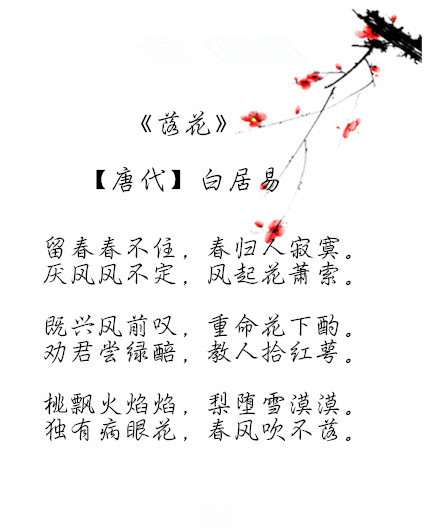 《落花》
【唐代】白居易
留春春不住，春归人寂寞。
厌风风不定，风起花萧索。
既兴风前叹，重命花下酌。
劝君尝绿醅，教人拾红萼。
桃飘火焰焰，梨堕雪漠漠。
独有病眼花，春风吹不落。